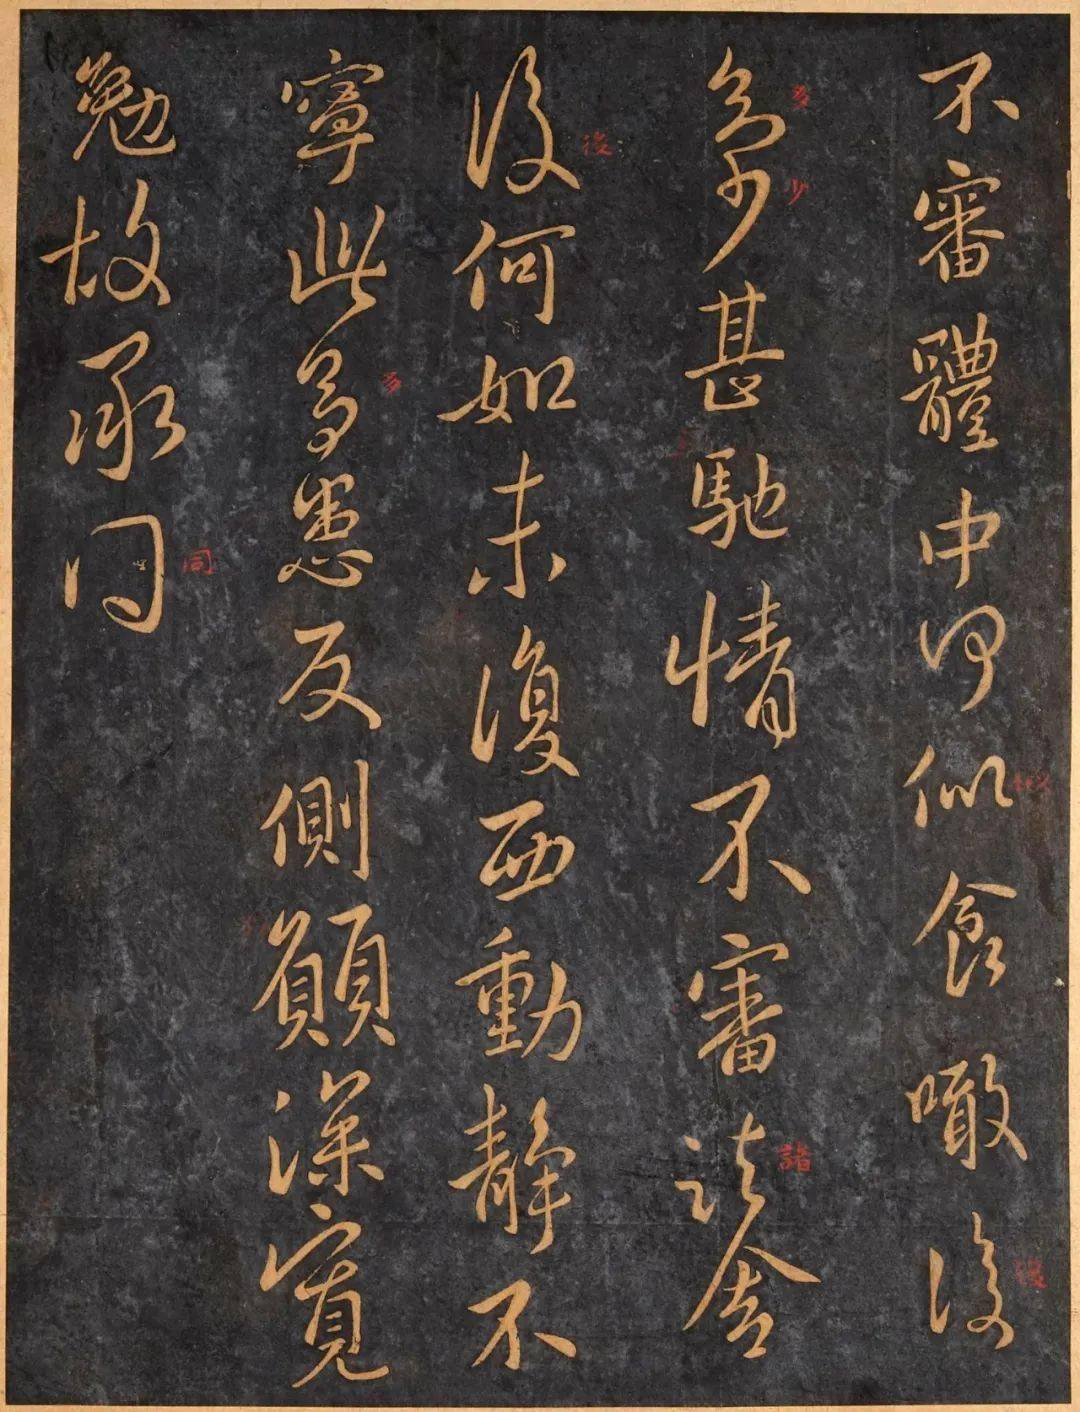 不審體中何似食噉復
多少甚馳情不審諸舍
復何如未復西動靜不
寧此多患反側願深寬
勉故承問